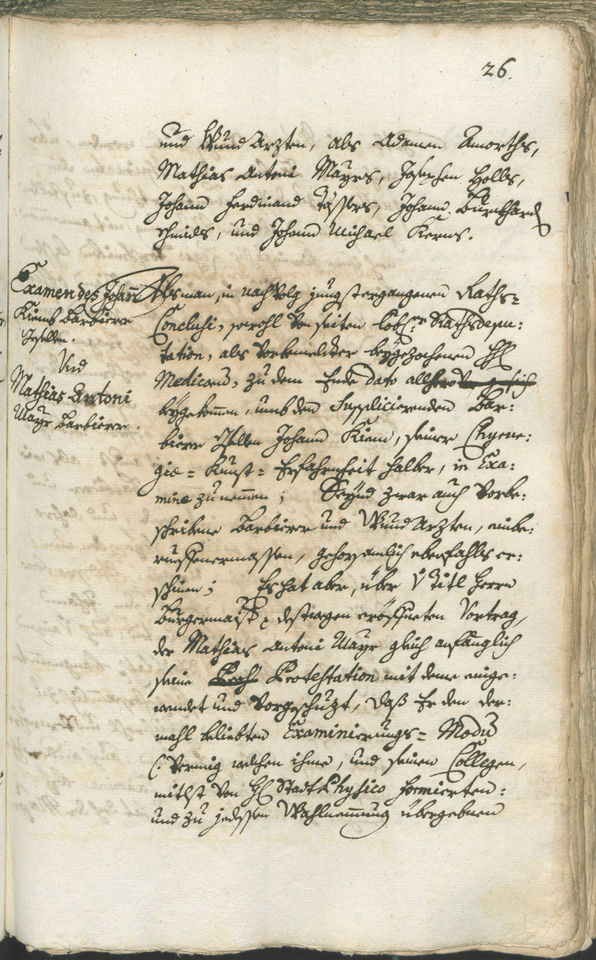 26.
und WundArzten, als Adamen Amorths,
Mathias Antoni Mayrs, Josephen Holls,
Johann Ferdinand Tassers, Johann Burckhard
schmids, und Johann Michael Kerns.
Examen des Johann
Kiems Barbierer
Gesellen.
Und
Mathias Antoni
Mayr Barbierer.
Als man, in nachVolg jüngst ergangenen Raths=
Conclusi, sowohl Von seiten Löbl: Rathsdepu:
tation, als Vorbemelter beygezochenen HH
Medicorum, zu dem Ende dato
beykommen, umb den Supplicierenden Bar:
bierer Gsellen Johann Kiem, seiner Chyrur:
gie= Kunst= Erfahrenheit halber, in Exa:
mine zu nemmen; Seynd zwar auch Vorbe:
schribene Barbierer und WundArzten, anbe:
ruoffenermassen, gehorsamlich ebenfahls er:
schinen; Es hat aber, über Titl Herrn
Burgermaist: destwegen eröffneten Vortrag,
der Mathias Antoni Mayr gleich anfänglich
seine Protestation mit deme einge:
wendet und Vorgeschüzt, daß Er den der:
mahl beliebten Examinierungs= Modum
(: Vermög welchen ihme, und seinen Collegen,
mitlst Von HE StadtPhysico formierten:
und zu jedessen Wahlnemmung übergebenen